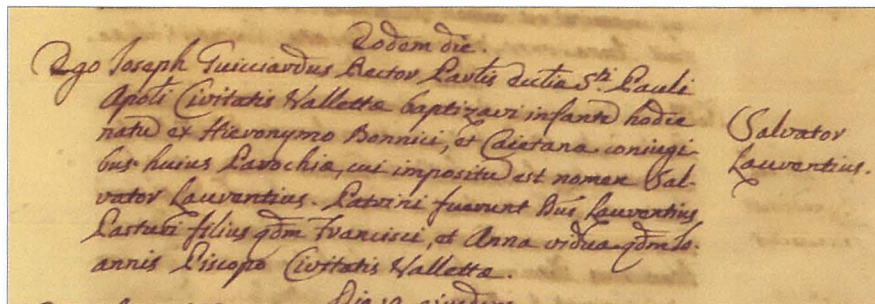 Eodem die.
Ego Joseph Guicciardus Rector Parlis Ecclia Sti. Pauli
Apoli Civitatis Vallettæ baptizavi infante hodie
natu ex Hieronymo Bonnici, et Caietana coniugi-
bus huius Parochiæ, cui impositu est nomen Sal-
vator Laurentius. Patrini fuerunt Laurentius
Pasturi filius qdm Francisci, et Anna vidua qdm Io-
annis Piscopo Civitatis Vallettæ.
Salvator
Laurentius.